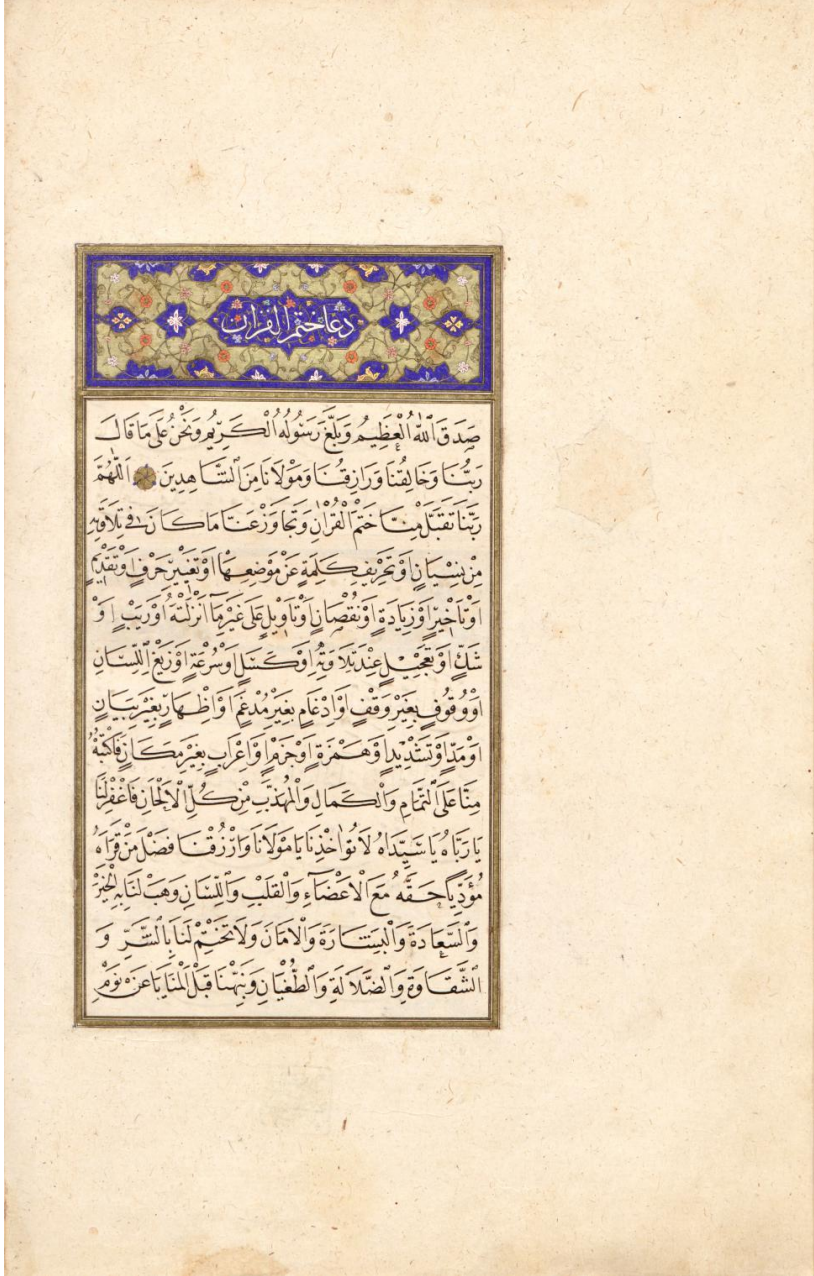 دعا ختم القران
صَدَقَ ٱللّٰهُ ٱلْعَظِيمُ وَبَلَّغَ رَسُولُهُ ٱلْكَرِيمُ وَنَحْنُ عَلَى مَا قَالَ
رَبُّنَا وَخَالِقُنَا وَرَازِقُنَا وَمَوْلَانَا مِنَ ٱلشَّاهِدِينَ اَللّٰهُمَّ
رَبَّنَا تَقَبَّلْ مِنَّا خَتْمَ الْقُرْاٰنِ وَتَجَاوَزْ عَنَّا مَا كَانَ فِي تِلَاوَتِهِ
مِنْ نِسْيَانٍ اَوْ تَحْرِيفِ كَلِمَةٍ عَنْ مَوْضِعِهَا اَوْ تَغْيِيرِ حَرْفٍ اَوْ تَقْدِيمٍ
اَوْ تَأْخِيرٍ اَوْ زِيَادَةٍ اَوْ نُقْصَانٍ اَوْ تَاْوِيلٍ عَلَى غَيْرِ مَا اَنْزَلْتَهُ اَوْ رَيْبٍ اَوْ
شَكٍّ اَوْ تَعْجِيلٍ عِنْدَ تِلَاوَتِهِ اَوْ كَسَلٍ اَوْ سُرْعَةٍ اَوْ زَيْغِ اللِّسَانِ
اَوْ وُقُوفٍ بِغَيْرِ وَقْفٍ اَوْ اِدْغَامٍ بِغَيْرِ مُدْغَمٍ اَوْ اِظْهَارٍ بِغَيْرِ بَيَانٍ
اَوْ مَدٍّ اَوْ تَشْدِيدٍ اَوْ هَمْزَةٍ اَوْ جَزْمٍ اَوْ اِعْرَابٍ بِغَيْرِ مَكَانٍ فَاكْتُبْهُ
مِنَّا عَلَى ٱلتَّمَامِ وَٱلْكَمَالِ وَٱلْمُهَذَّبِ مِنْ كُلِّ ٱلْاَلْحَانِ فَاغْفِرْ لَنَا
يَا رَبَّاهُ يَا سَيِّدَاهُ لَا تُؤَاخِذْنَا يَا مَوْلَانَا وَارْزُقْنَا فَضْلَ مَنْ قَرَاَهُ
مُؤَدِّيًا حَقَّهُ مَعَ الْاَعْضَآءِ وَالْقَلْبِ وَاللِّسَانِ وَهَبْ لَنَا بِهِ الْخَيْرَ
وَالسَّعَادَةَ وَالْبَشَارَةَ وَالْاَمَانَ وَلَا تَخْتِمْ لَنَا بِالشَّرِّ وَ
الشَّقَاوَةِ وَالضَّلَالَةِ وَالطُّغْيَانِ وَنَبِّهْنَا قَبْلَ الْمَنَايَا عَنْ نَوْمِ